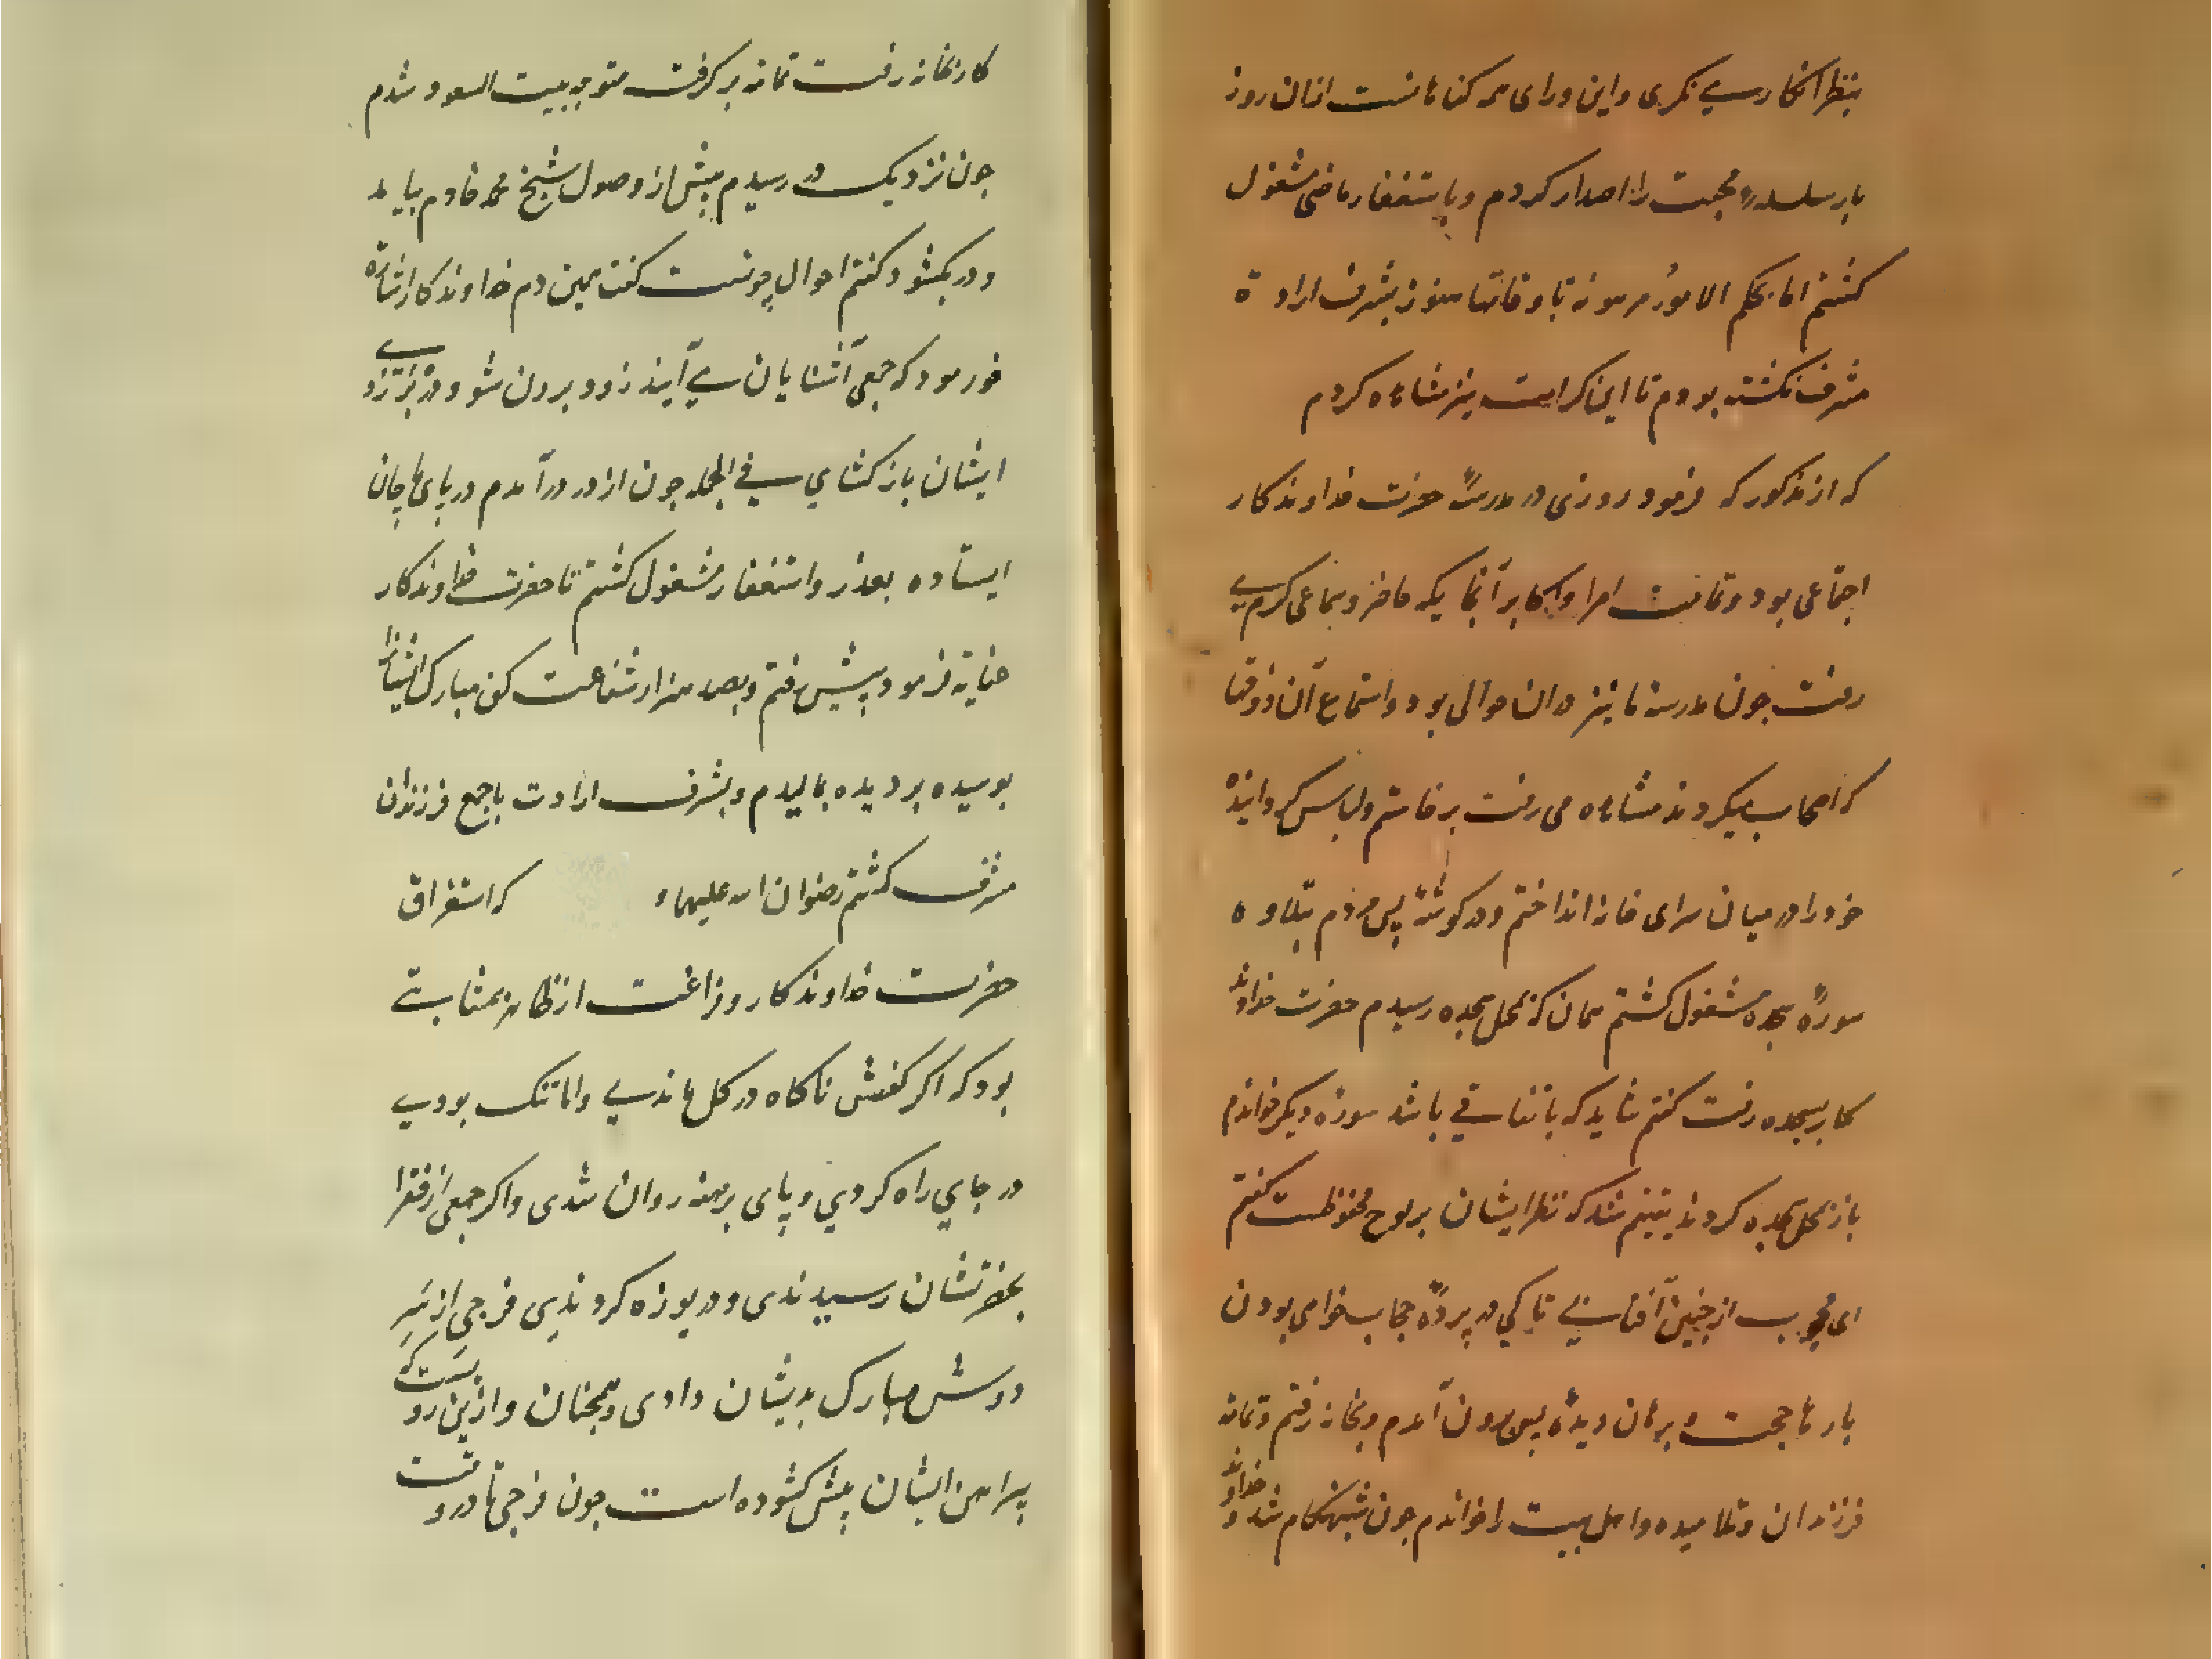 بنظر انکار سے نکری واین ورای همه کناهاست ازان روز
بار سلسلهٔ محبت را اصدار کردم و باستغفار ماضی مشغول
کشتم اما بحکم الامور مرهونة باوقاتها هنوز بشرف ارادة
مشرف نکشته بودم تا این کرامت نیز مشاهده کردم
که از مذکور که فرمود روزی در مدرسهٔ حضرت خداوندکار
اجتماعی بود و تمامت امرا و اکابر آنجایکه حاضر و سماعی کرم می
رفت جون مدرسه ما نیز دران حوالی بود و استماع آن ذوقها
که اصحاب میکردند مشاهده می رفت برخاستم ولباس کردانیده
خود را در میان سرای خانه انداختم ودر کوشهٔ پس مردم بتلاوه
سورهٔ سجده مشغول کشتم همان که بمحل سجده رسیدم حضرت خداوند
کار بسجده رفت کفتم شاید که باتفاقے باشد سورهٔ دیکر خواندم
باز بمحل سجده کردند یقینم شد که نظر ایشان بر لوح محفوظست کفتم
ای محجوب از جنین آفتابے تا کی در پردهٔ حجاب خواهی بودن
بارها حجت و برهان دیدهٔ پس برون آمدم وبخانه رفتم وتمامه
فرزندان وتلامیذه واهل بیت را خواندم جون شبهنکام شد و خداوند
کار بخانه رفت تمامه بر کرفت متوجه بیت السعود شدم
جون نزدیک در رسیدم پیش از وصول شیخ محمد خادم بیامد
ودر بکشود کفتم احوال چونست کفت همین دم خداوندکار اشارة
فرمود که جمعی آشنایان مے آیند زود برون شو ودر بر روی
ایشان باز کشای فے الجمله جون از در درآمدم در پای ماچان
ایستاده بعذر واستغفار مشغول کشتم تا حضرت خداوندکار
عنایة فرمود پیش رفتم وبصد هزار شفاعت کف مبارک ایشانرا
بوسیده بر دیده بمالیدم وبشرف ارادت باجمع فرزندان
مشرف کشتم رضوان الله علیهما که استغراق
حضرت خداوندکار وفراغت از ظاهر بمثابتے
بود که اکر کفش ناکاه در کل ماندے واما تنک بودے
در جایي راه کردي و پای برهنه روان شدی واکر جمعی از فقرا
بحضرتشان رسیدندی ودریوزه کردندی فرجی از سر
دوش مبارک بدیشان دادی وهمچنان وازین روست که
پیراهن ایشان پیش کشوده است جون فرجی تا در وقت